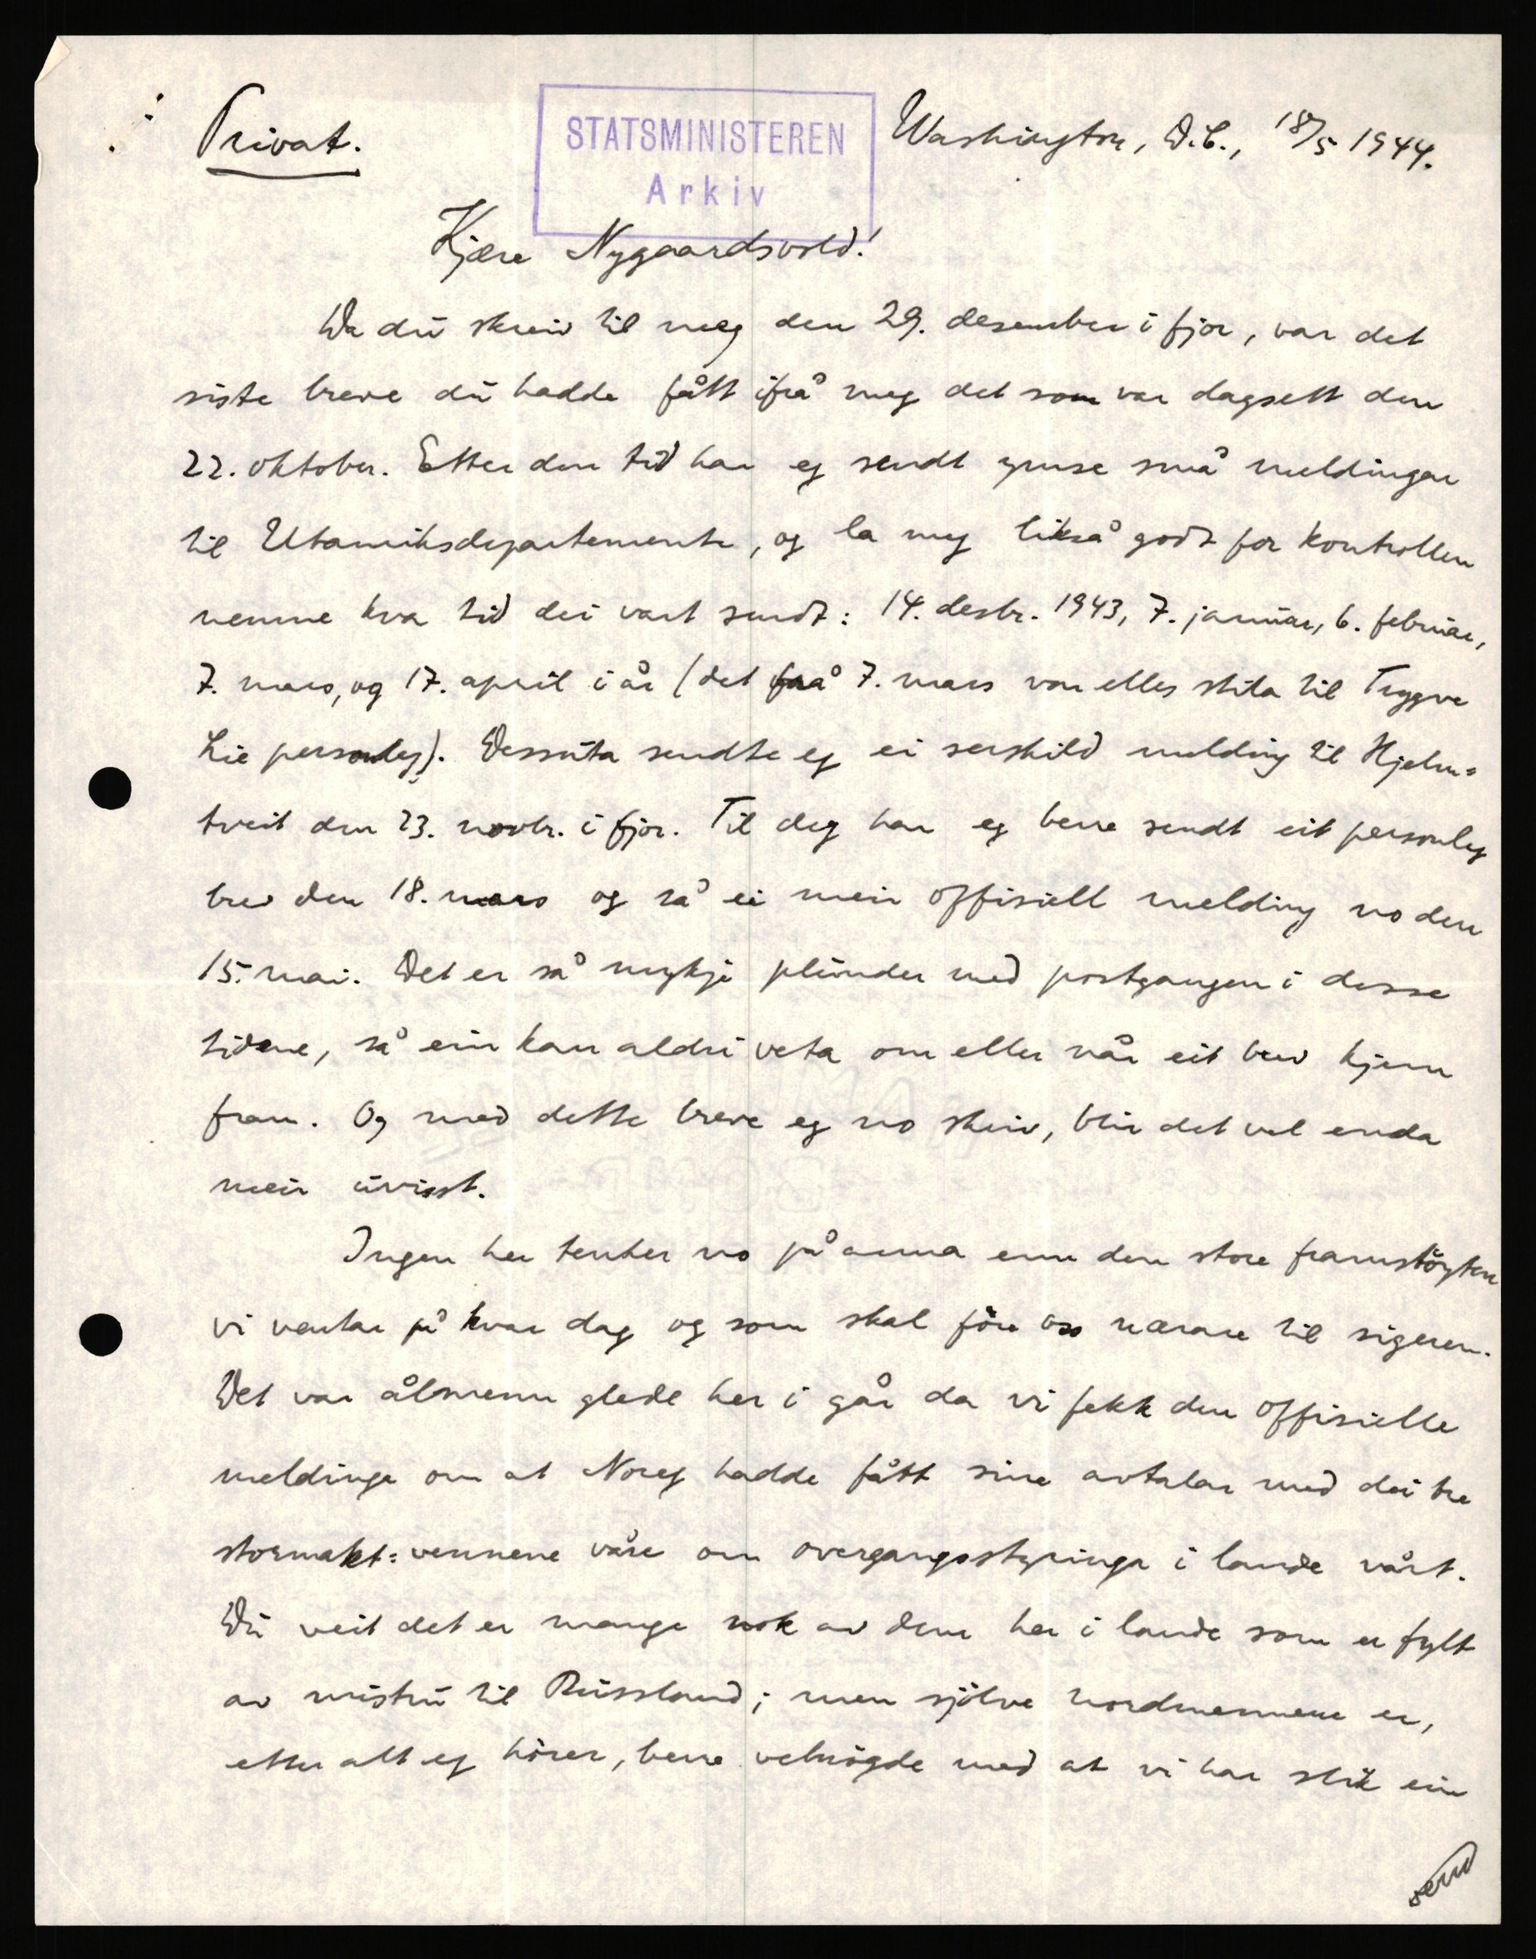 Privat.
STATSMINISTEREN
Arkiv
Washington, D.C., 18/5 1944.
Kjære Nygaardsvold!
Da du skreiv til meg den 29. desember i fjor, var det
siste breve du hadde fått ifrå meg det som var dagsett den
22. oktober. Etter den tid har eg sendt ymse små meldingar
til Utanriksdepartemente, og la meg likså godt for kontrollen
nemne kva tid dei vart sendt: 14. desbr. 1943, 7. januar, 6. februar,
7. mars, og 17. april i år (det frå 7. mars var elles stila til Trygve
Lie personleg). Dessuta sendte eg ei serskild melding til Hjelm-
tveit den 23. novbr. i fjor. Til deg har eg berre sendt eit personleg
brev den 18. mars og så ei meir offisiell melding no den
15. mai. Det er så mykje plunder med postgangen i desse
tidene, så ein kan aldri veta om eller når eit brev kjem
fram. Og med dette breve eg no skriv, blir det vel enda
meir uvisst.
Ingen her tenker no på anna enn den store framstöyten
vi ventar på kvar dag og som skal före oss nærare til sigeren.
Det var ålmenn glede her i går da vi fekk den offisielle
meldinga om at Noreg hadde fått sine avtalar med dei tre
stormakt-vennene våre om overgangsstyringa i lande vårt.
Du veit det er mange nok av dem her i lande som er fylt
av mistru til Russland; men sjölve nordmennene er,
etter alt eg hörer, berre velnögde med at vi har slik ein
vend